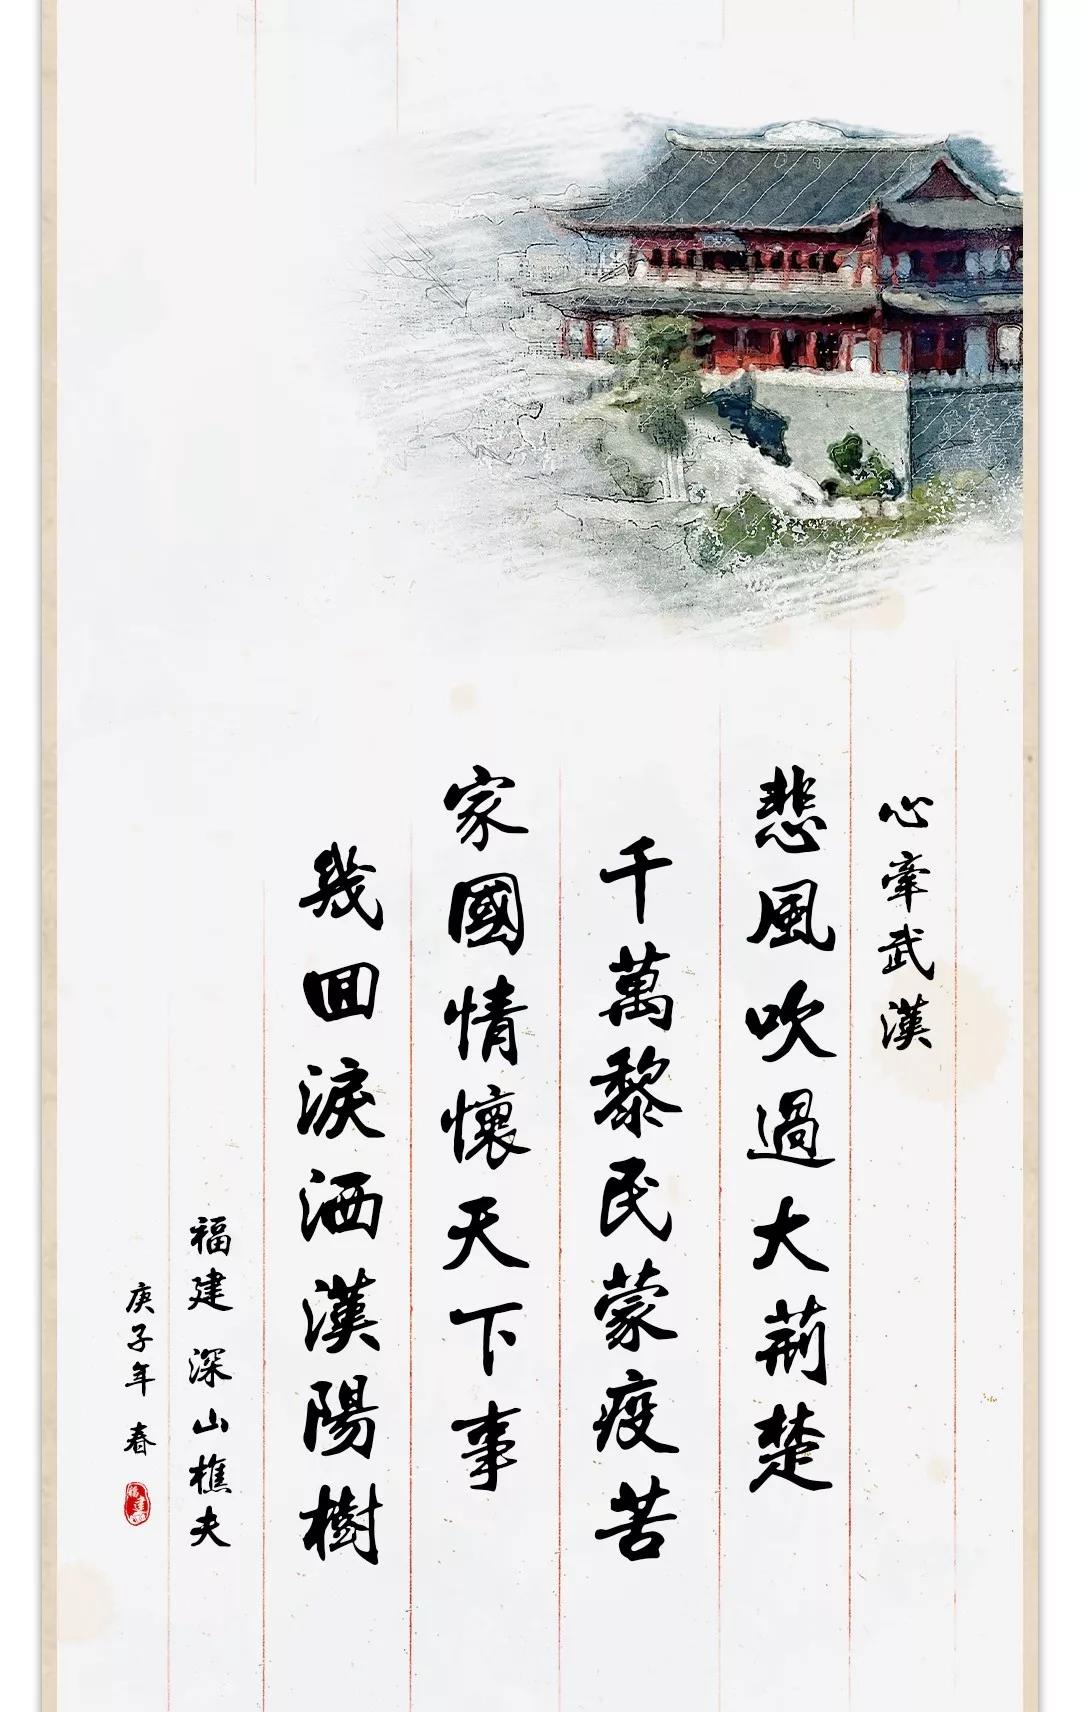 心牽武漢
悲風吹過大荊楚
千萬黎民蒙疫苦
家國情懷天下事
幾回淚洒漢陽樹
福建 深山樵夫
庚子年 春